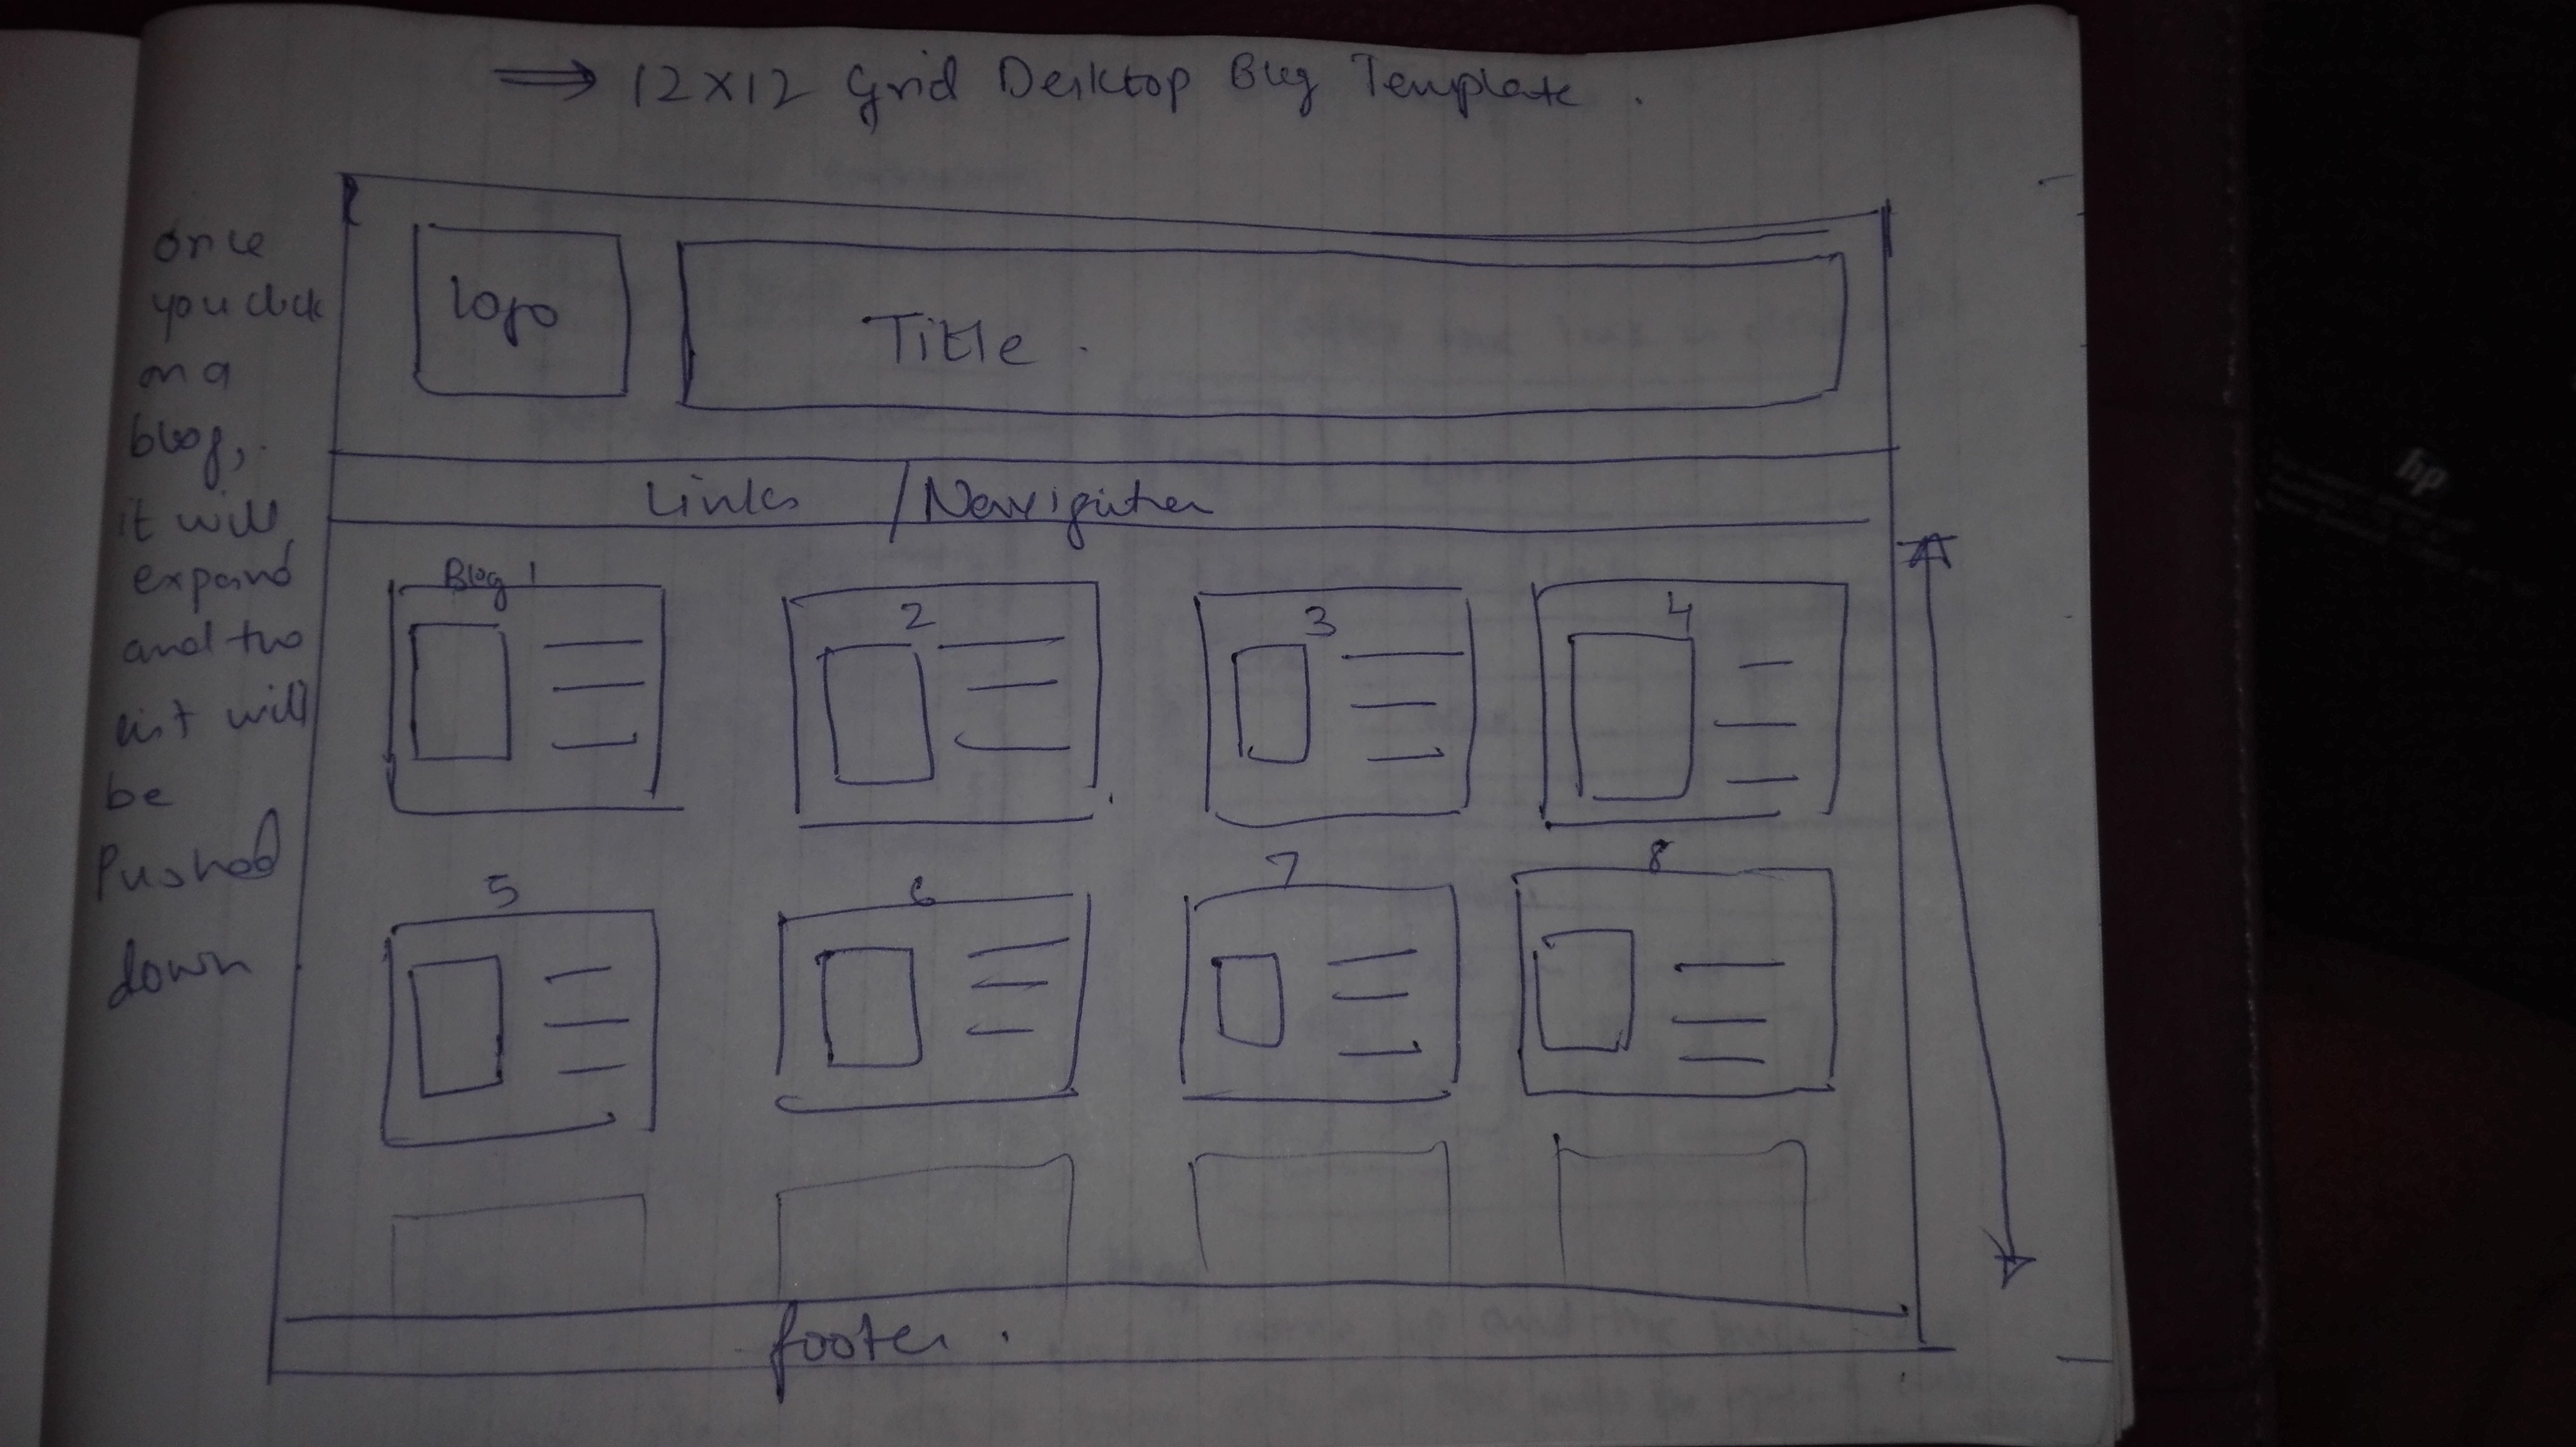 ⇒ 12x12 Grid Desktop Blog Template.
once
you click
on a
blog,
it will
expand
and the
list will
be
Pushed
down
logo
Title.
Links / Navigation
Blog 1
2
3
4
5
6
7
8
footer.
hp